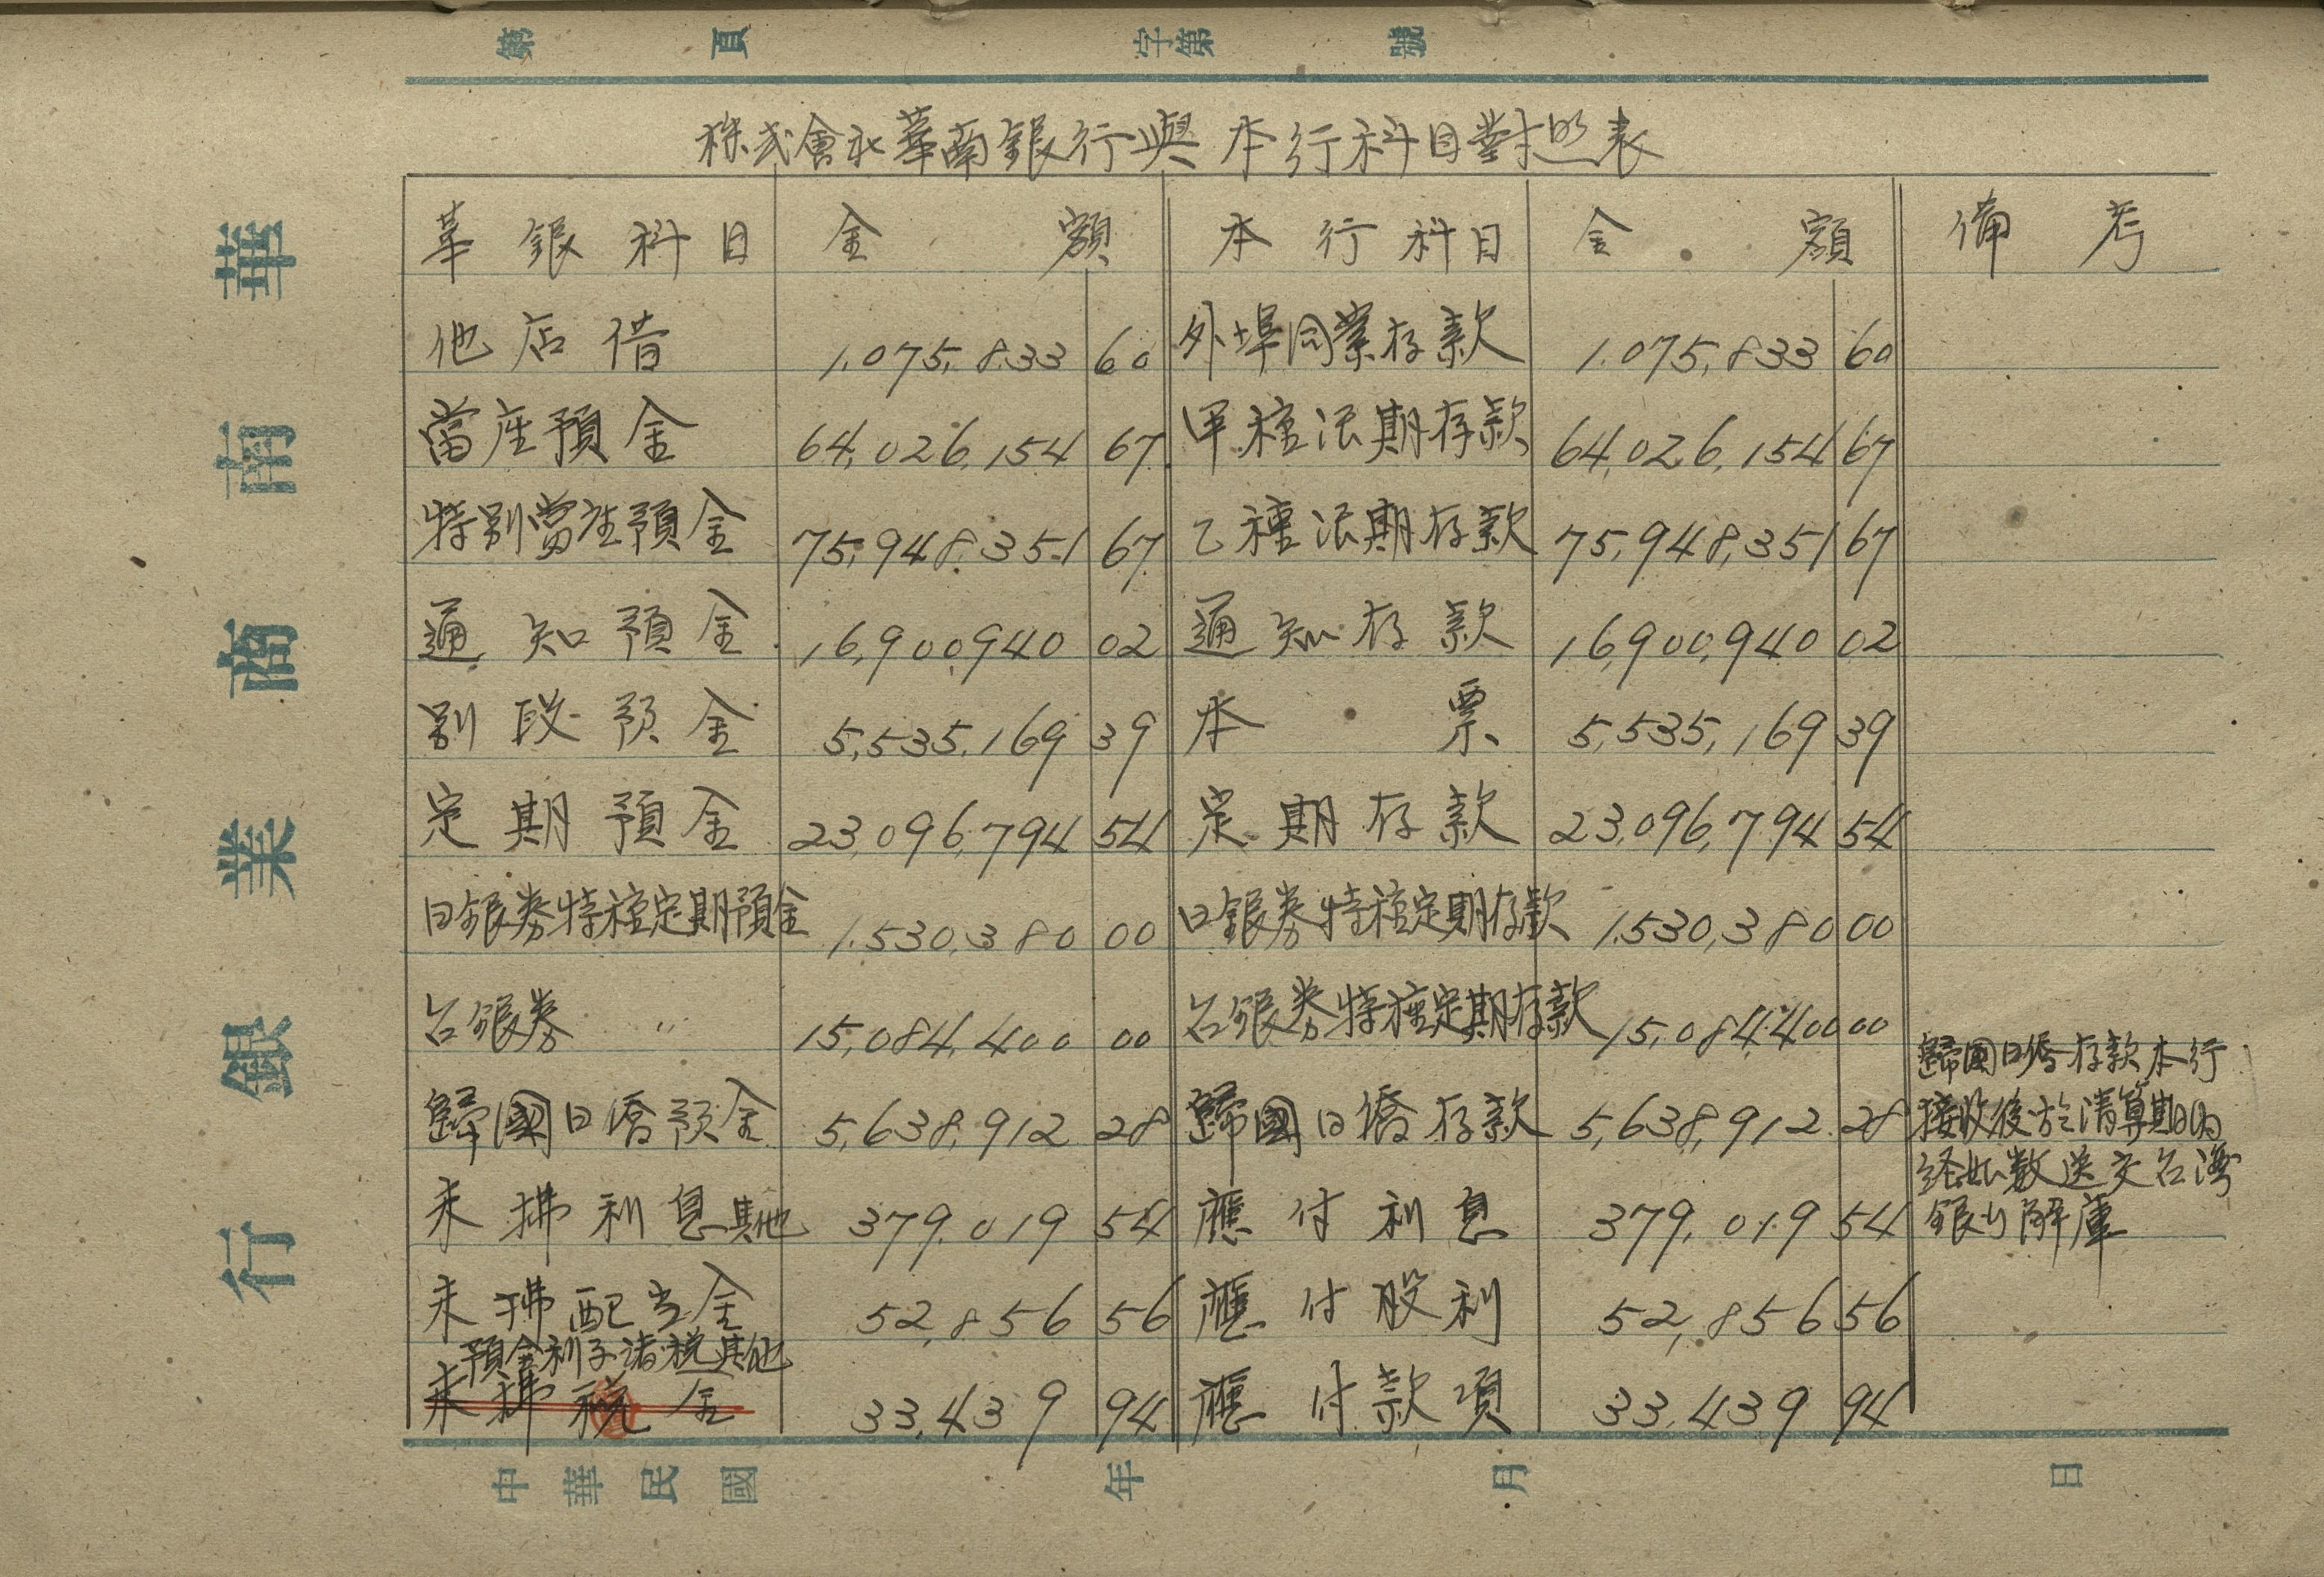 第 頁 字第 號
株式會社華南銀行與本行科目對照表
華銀科目 金額 本行科目 金額 備考
他店借 1,075,833 60 外埠同業存款 1,075,833 60
當座預金 64,026,154 67 甲種活期存款 64,026,154 67
特別當座預金 75,948,351 67 乙種活期存款 75,948,351 67
通知預金 16,900,940 02 通知存款 16,900,940 02
別段預金 5,535,169 39 本票 5,535,169 39
定期預金 23,096,794 54 定期存款 23,096,794 54
日銀券特種定期預金 1,530,380 00 日銀券特種定期存款 1,530,380 00
台銀券 〃 15,084,400 00 台銀券特種定期存款 15,084,400 00
歸國日僑預金 5,638,912 28 歸國日僑存款 5,638,912 28
歸國日僑存款本行
接收後於清算期內
経如数送交台湾
銀行解庫
未拂利息其他 379,019 54 應付利息 379,019 54
未拂配当金 52,856 56 應付股利 52,856 56
預金利子諸税其他
未拂税金 33,439 94 應付款項 33,439 94
中華民國 年 月 日
華南商業銀行